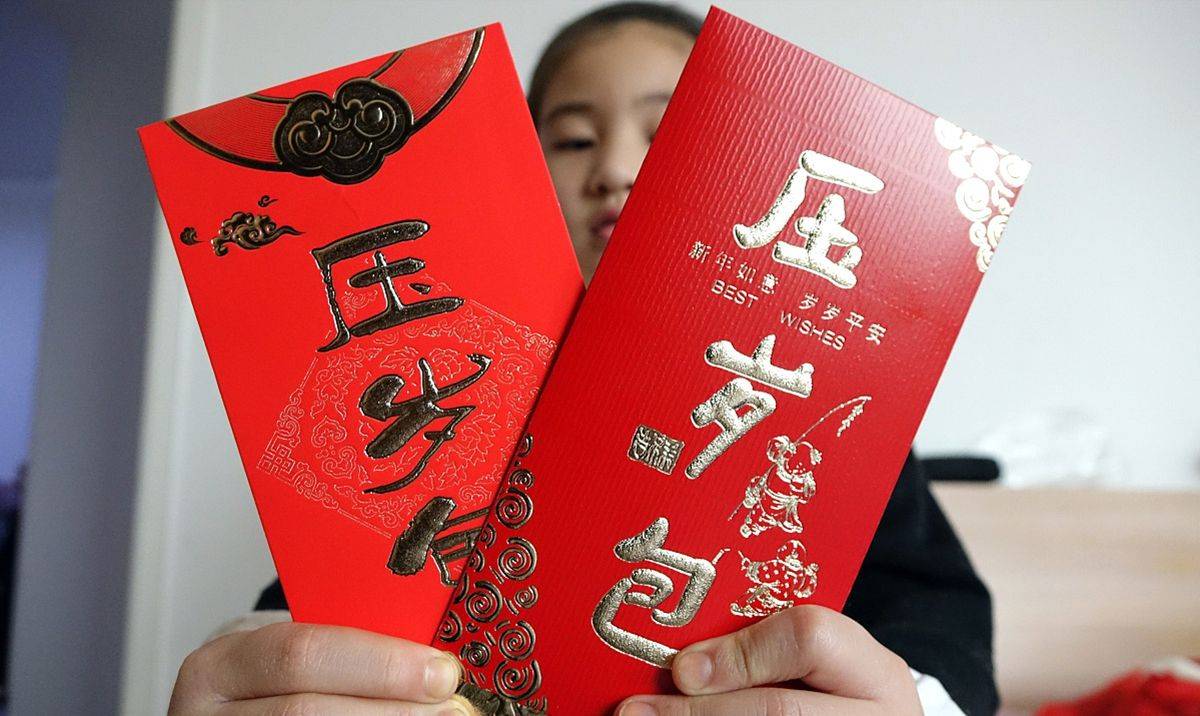 压岁
压岁包
新年如意 岁岁平安
BEST WISHES